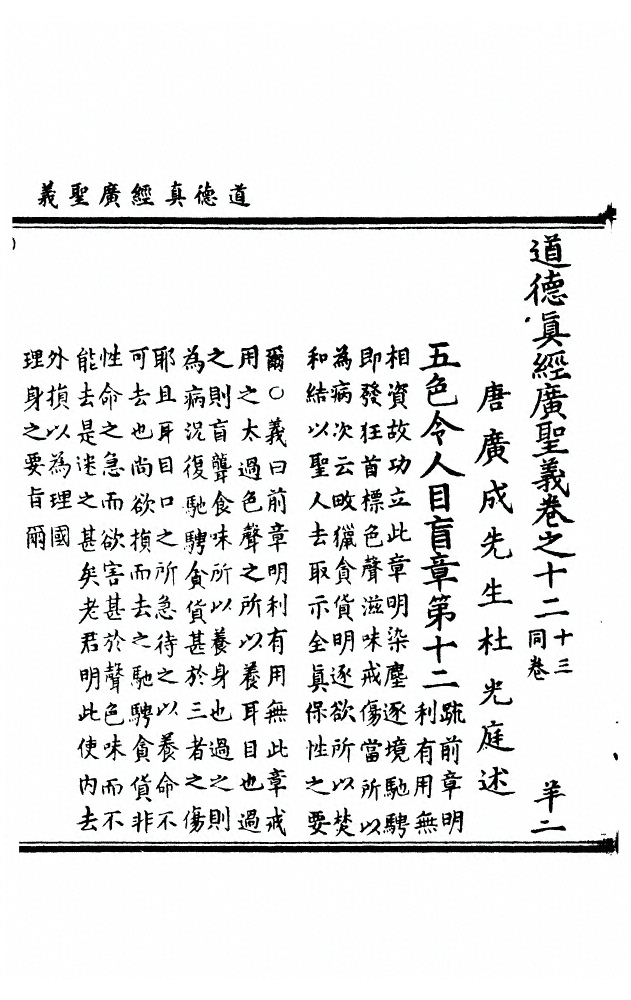 道德真經廣聖義
道德眞經廣聖義卷之十二 十三同卷 羊二
唐廣成先生杜光庭述
五色令人目盲章第十二 疏前章明
利有用無
相資故功立此章明染塵逐境馳騁
即發狂首標色聲滋味戒傷當所以
為病次云畋獵貪貨明逐欲所以焚
和結以聖人去取示全眞保性之要
爾○義曰前章明利有用無此章戒
用之太過色聲之所以養耳目也過
之則盲聾食味所以養身也過之則
為病況復馳騁貪貨甚於三者之傷
耶且耳目口之所急待之以養命不
可去也尚欲損而去之馳騁貪貨非
性命之急而欲害甚於聲色味而不
能去是迷之甚矣老君明此使內去
外損以為理國
理身之要旨爾